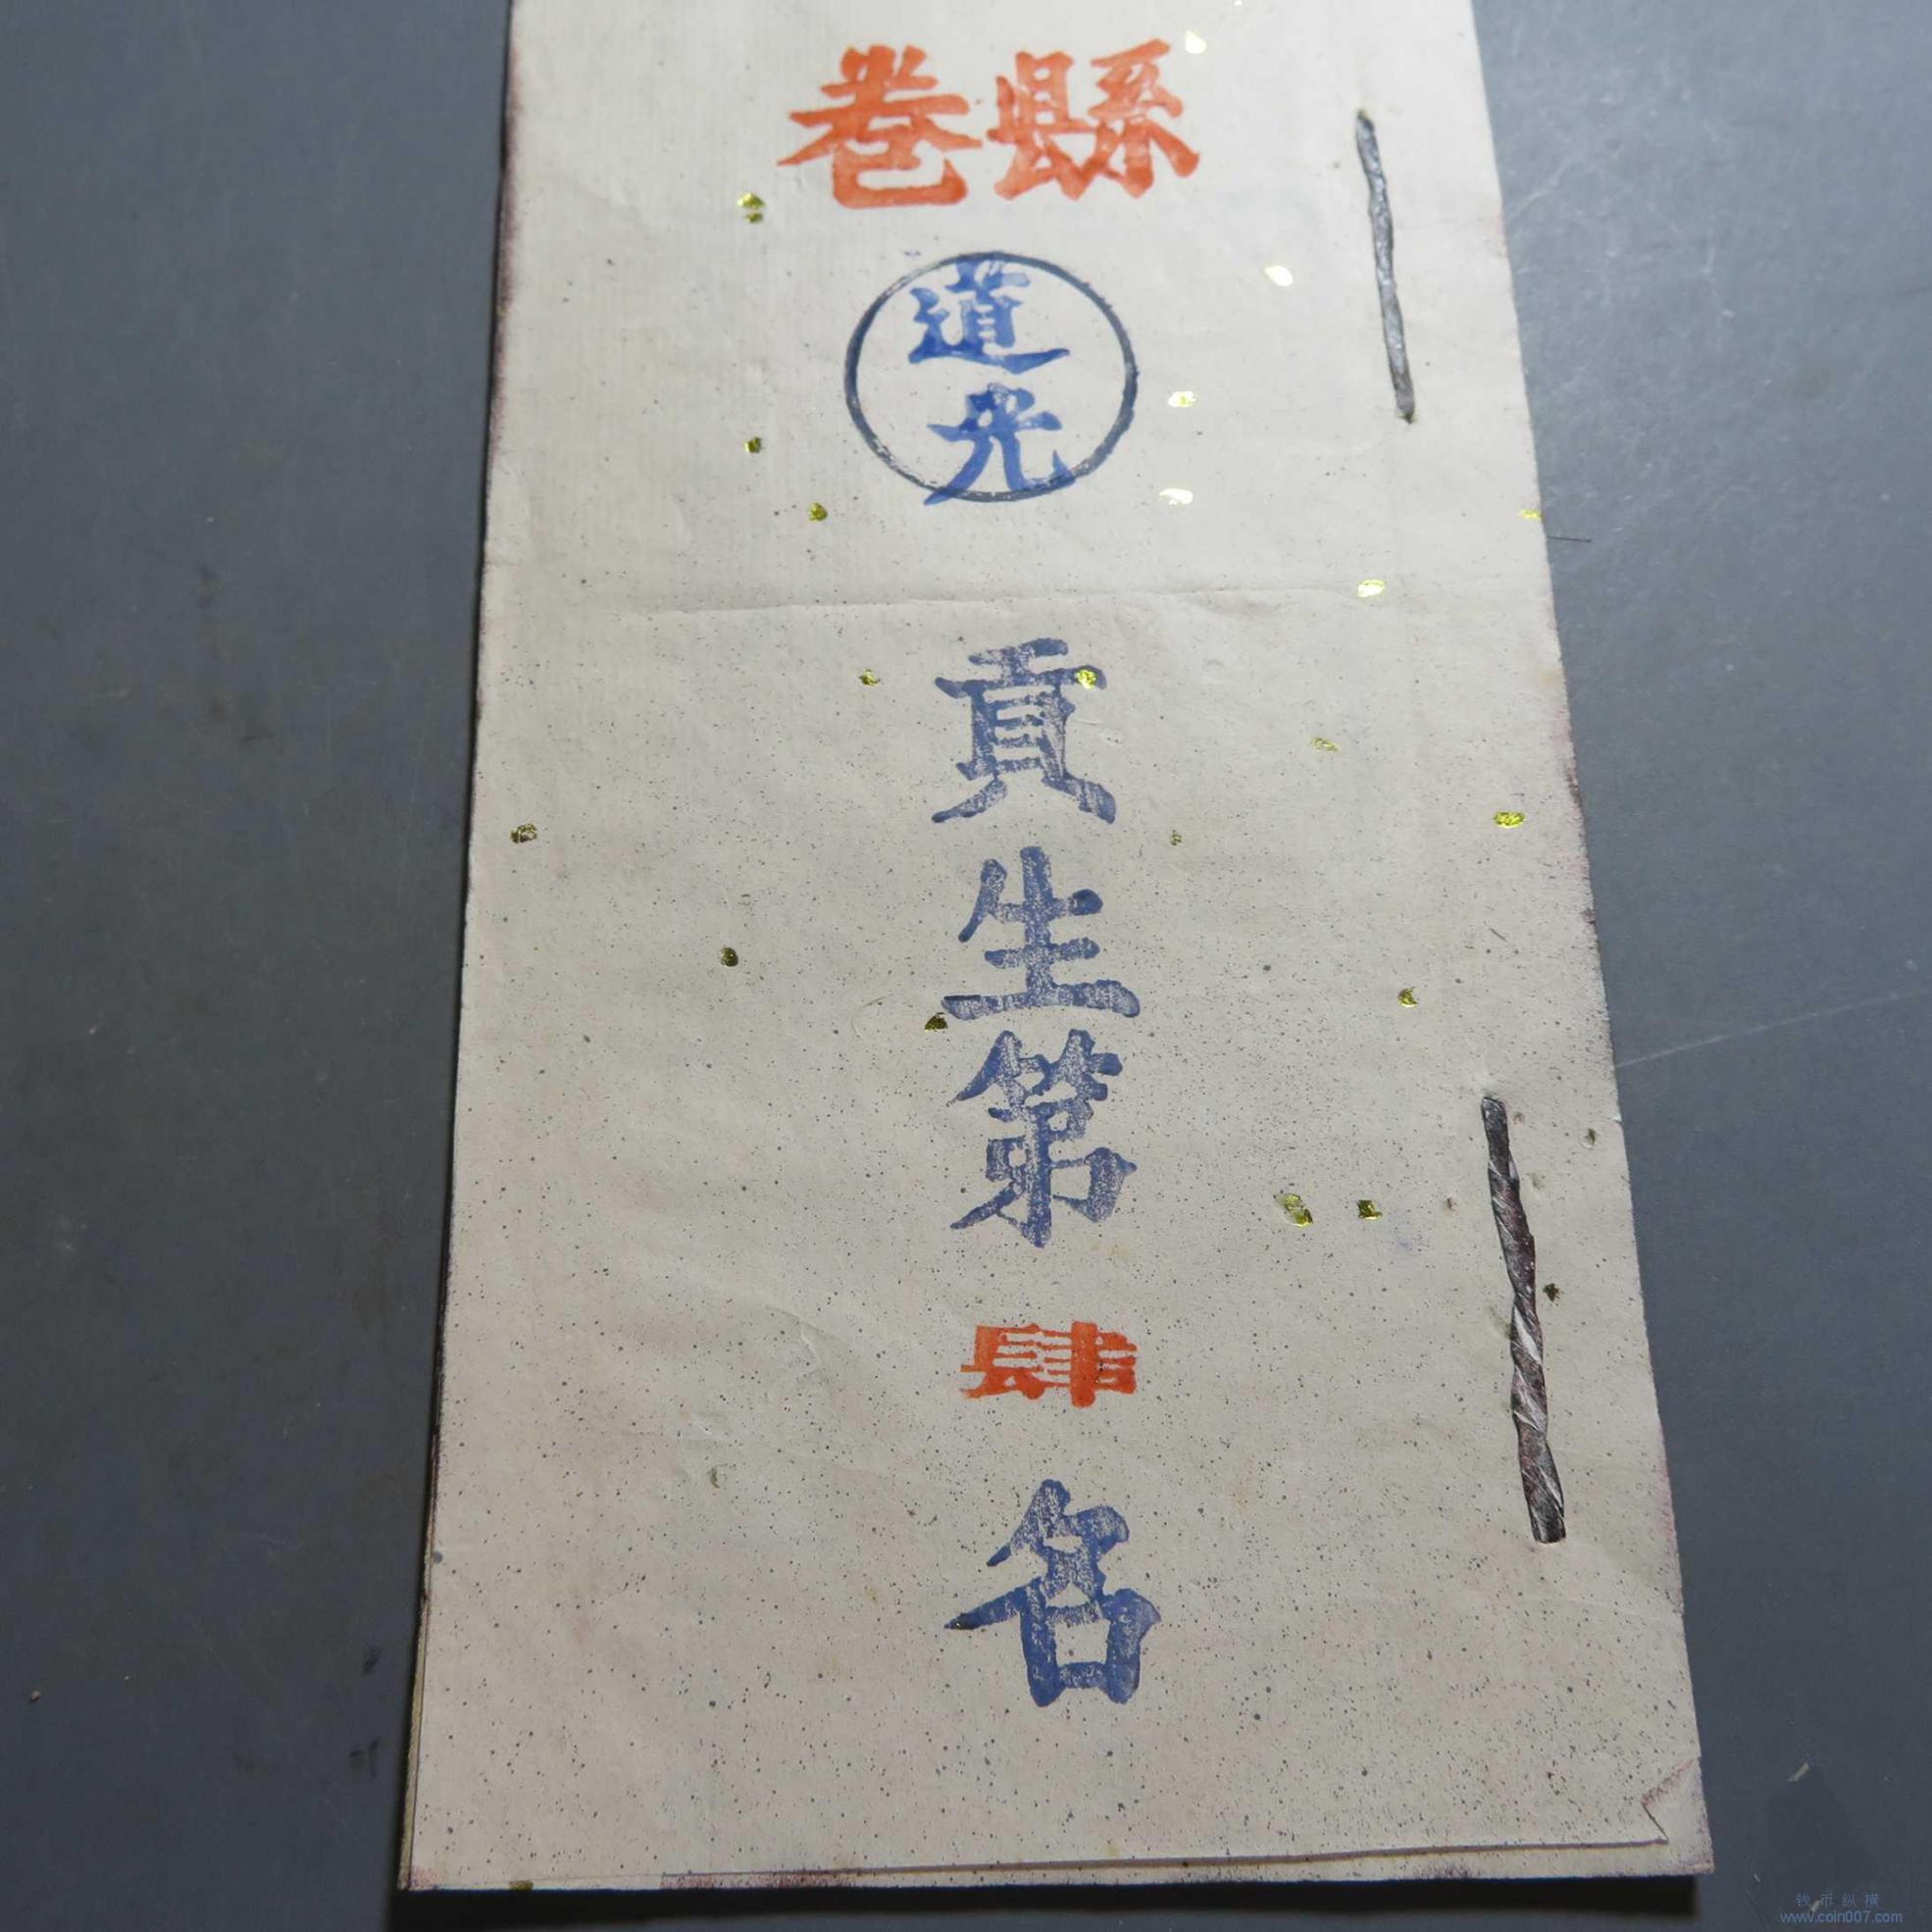 縣卷
道光
貢生第肆名
钱币纵横
www.coin007.com